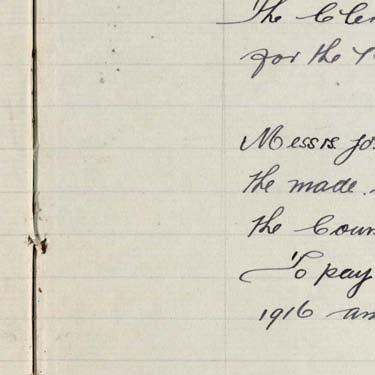 The Cler
for the
Messrs. Jo
the made
the Coun
To pay
1916 an